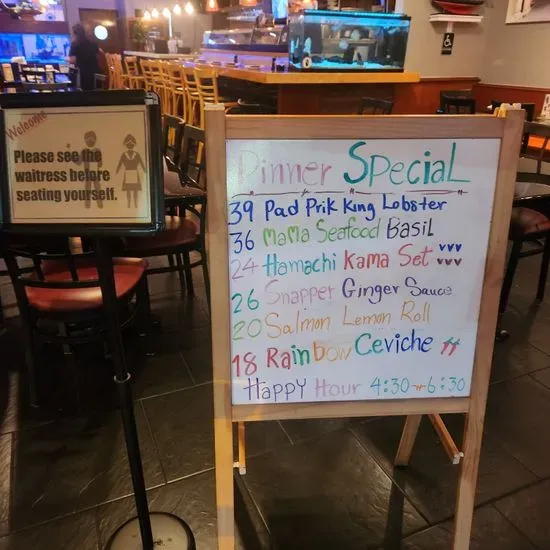 Welcome
Please see the
waitress before
seating yourself.
Dinner Special
39 Pad Prik King Lobster
36 Mama Seafood Basil
24 Hamachi Kama Set
26 Snapper Ginger Sauce
20 Salmon Lemon Roll
18 Rainbow Ceviche
Happy Hour 4:30 → 6:30